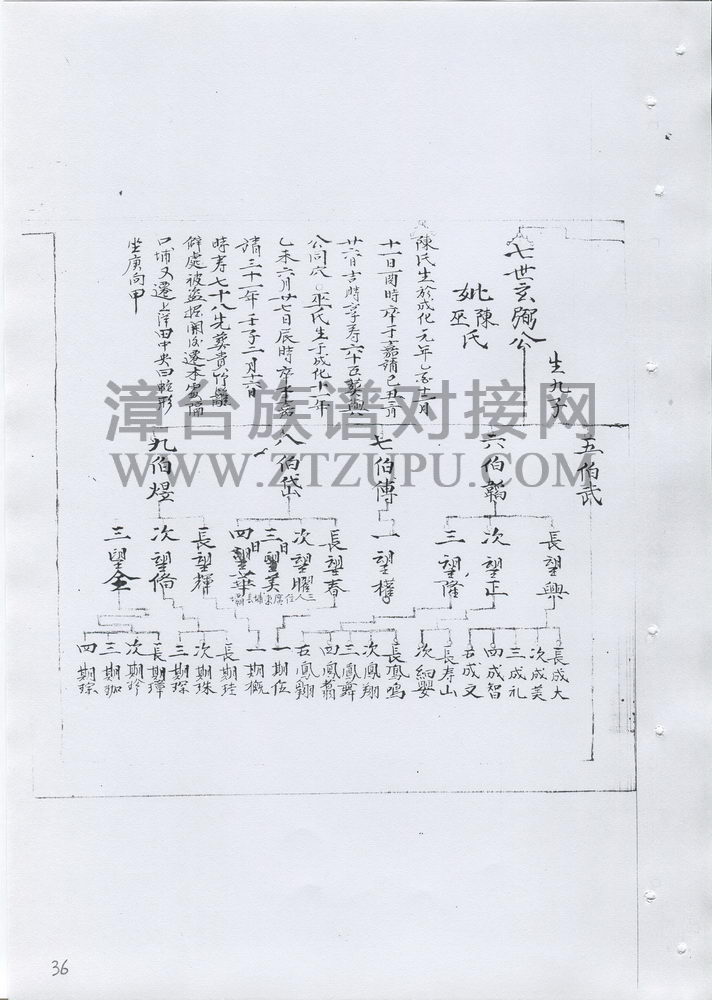 七世玄弼公
妣陳巫氏
生九子
陳氏生於成化元年乙酉十一月
十一日酉時卒于嘉靖己丑二月
廿六日吉時享寿六十五葬與
公同穴○巫氏生于成化十一年
乙未六月廿七日辰時卒于嘉
靖三十一年壬子二月十六日
時寿七十八先葬貴竹
僻處被盗掘開後遷本處隔
口埔又遷上洋田中央曰蛇形
坐庚向甲
五伯武
六伯韜
七伯傳
八伯岱
九伯煖
長望興
次望正
三望隆
一望權
長望春
次望耀
三望美
四望華
三人住
長望輝
次望倫
三望全
長成大
次成美
三成礼
四成智
五成文
長寿山
次細嬰
長鳳鳴
次鳳翔
三鳳
四鳳翥
五鳳翱
一期位
一期概
長期珪
次期珠
三期琛
長期璋
次期珍
三期珈
四期琮
漳台族谱对接网
WWW.ZTZUPU.COM
36